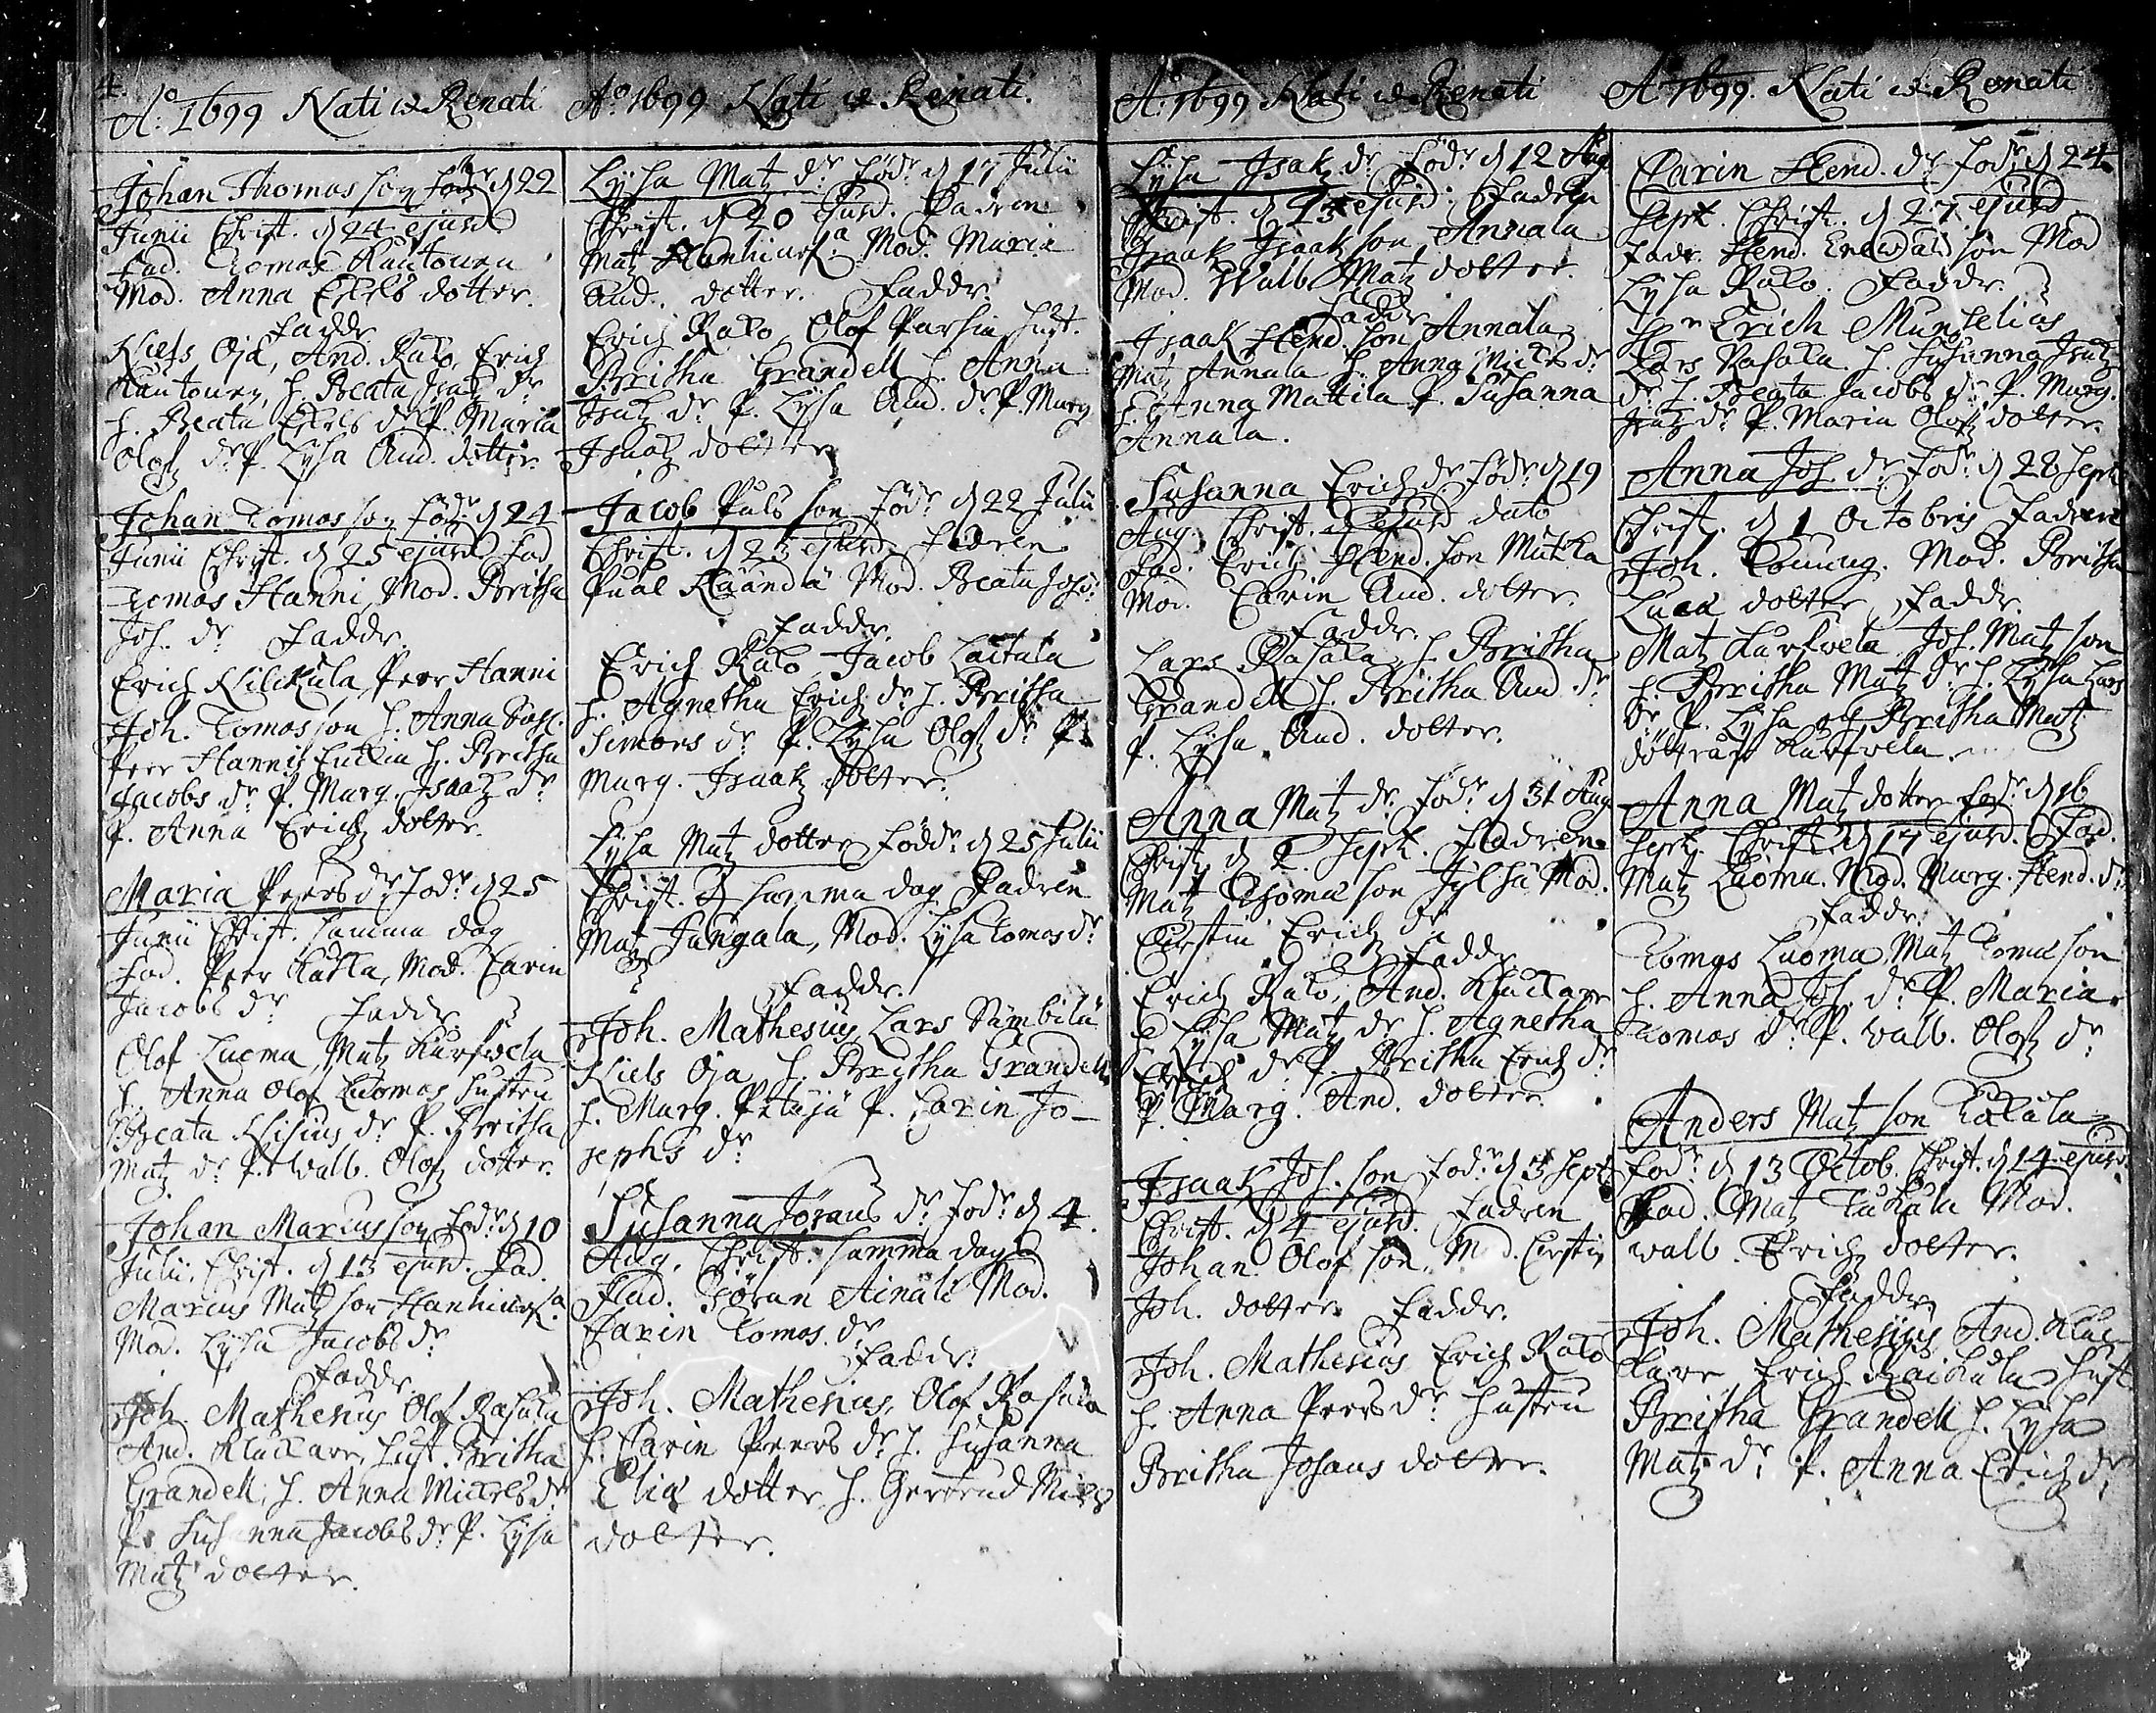 4.
Ao. 1699 Nati & Renati
Johan Thomas son född d 22
Junii Christ. d 24 ejusd.
Fad. Tomas Kantonen
Mod. Anna Eskels dotter.
Faddr.
Niels Oja, And. Kako, Erich
Kantonen, h. Beata Isaaks dr
h. Beata Eskels dr P. Maria
Olofz dr P. Lysa And. dotter.
Johan Tomas son födr d 24
Junii Christ. d 25 ejusd. Fad
Tomas Hanni Mod. Britha
Joh. dr Faddr.
Erich Kilckula, Peer Hanni
Joh. Tomas son h. Anna
Peer Hannis Enckia h. Britha
Jacobs dr P. Marg. Isaakz dr
P. Anna Erichz dotter.
Maria Peers dr Födr d 25
Junii Christ. samma dag
Fad. Peer Kukla, Mod. Carin
Jacobs dr Faddr
Olof Luoma, Matz Kurkvela
h. Anna Olof Luomas hustru
h. Beata dr P. Britha
Matz dr P. Walb. Olofz dotter.
Johan Marcus son Födr d 10
Julii, Christ. d 13 ejusd. Fad.
Marcus Matz son Hanhiursa
Mod. Lysa Jacobs dr
Faddr
Joh. Mathesius Olof Rasala
And. Kluckare, hust. Britha
Grandell, h. Anna Mickels dr
P. Susanna Jacobs dr P. Lysa
Matz dotter.
Ao. 1699 Nati & Renati.
Lysa Matz dr Födr d 17 Julii
Christ. d 20 ejusd. Fadren
Matz Hanhiursa Mod. Maria
And. dotter. Faddr.
Erich Kako, Olof Parsia, hust.
Britha Grandell h. Anna
Isakz dr P. Lysa And. dr P. Marg
Isaakz dotter
Jacob Puls son Födr d 22 Julii
Christ. d 23 ejusd. Fadren
Pual Käändä Mod. Beata Johs:
Faddr.
Erich Kako Jacob Laitala
h. Agnetha Erichz dr h. Britha
Simons dr P. Lysa Olofz dr P.
Marg. Isaakz dotter.
Lysa Matz dotter Född. d 25 Julii
Christ. samma dag Fadren
Matz Jungala, Mod. Lysa Tomas dr
Faddr.
Joh. Mathesius, Lars Sambilä
Niels Oja h. Britha Grandell
h. Marg. P. Carin Jo-
sephs dr
Susanna Jörans dr Födr d 4.
Aug. Christ. samma dag
Fad. Jöran Ainali Mod.
Carin Tomas dr
Faddr.
Joh. Mathesius, Olof Rasala
h. Carin Peers dr h. Susanna
Eliæ dotter h. Gertrud Mickz
dotter.
Ao. 1699 Nati & Renati
Lysa Isakz dr Födr d 12 Aug
Christ. d 13 ejusd. Fadren
Isaak Isaakson Annala
Mod. Walb. Matz dotter.
Faddr
Isaak Hend. son Annala
Matz Annala h. Anna Mickz dr
h. Anna Mattila P. Susanna
Annala.
Susanna Erichz dr Födr d 19
Aug. Christ. d ejusd dato
Fad. Erich Hend. son Mukka
Mod. Carin And. dotter.
Faddr.
Lars Rasala h. Britha
Grandell h. Britha And. dr
P. Lysa And. dotter.
Anna Matz dr Födr d 31 Aug
Christ. d 2 Sept. Fadren
Matz Thomæ son Jylhä Mod.
Cirstin Erichz dr
Faddr
Erich Kako, And. Kluckare
Lysa Matz dr h. Agnetha
Erichz dr P. Britha Erichz dr
P. Marg. And. dotter
Isaak Joh. son Födr d 3 Sept
Christ. d 4 ejusd. Fadren
Johan Olof son, Mod. Cirstin
Joh. dotter Faddr.
Joh. Mathesius Erich Kako
h. Anna Peers dr hustru
Britha Johans dotter.
Ao 1699. Nati & Renati
Carin Hend. dr Födr d 24
Sept. Christ. d 27 ejusd
Fadr. Hend. son Mod
Lysa Kako. Faddr.
Hr Erich Munselius
Lars Rasala h. Susanna Isakz
dr h. Beata Jacobs dr P. Marg.
Isakz dr P. Maria Olofz dotter.
Anna Joh. dr Födr d 28 Sept
Christ. d 1 Octobris Fadren
Joh. Mod. Britha
Lucæ dotter Faddr.
Matz Kurkvela Joh. Matz son
h. Britha Matz dr h. Lysa Lars
dr P. Lysa och Britha Matz
döttrar Kurkvela.
Anna Matz dotter Födr d 16
Sept. Christ. d 17 ejusd. Fad.
Matz Luoma. Mod. Marg. Hend. dr
Faddr.
Tomas Luoma, Matz Tomæ son
h. Anna Joh. dr P. Maria
Tomas dr P. Walb. Olofz dr
Anders Matz son Tokala
Födr d 13 Octob. Christ. d 14 ejusd.
Fad. Matz Tukala Mod.
Walb. Erichz dotter.
Faddr
Joh. Mathesius And. Kluc-
kare Erich Raikula hust
Britha Grandell h. Lysa
Matz dr P. Anna Erichz dr